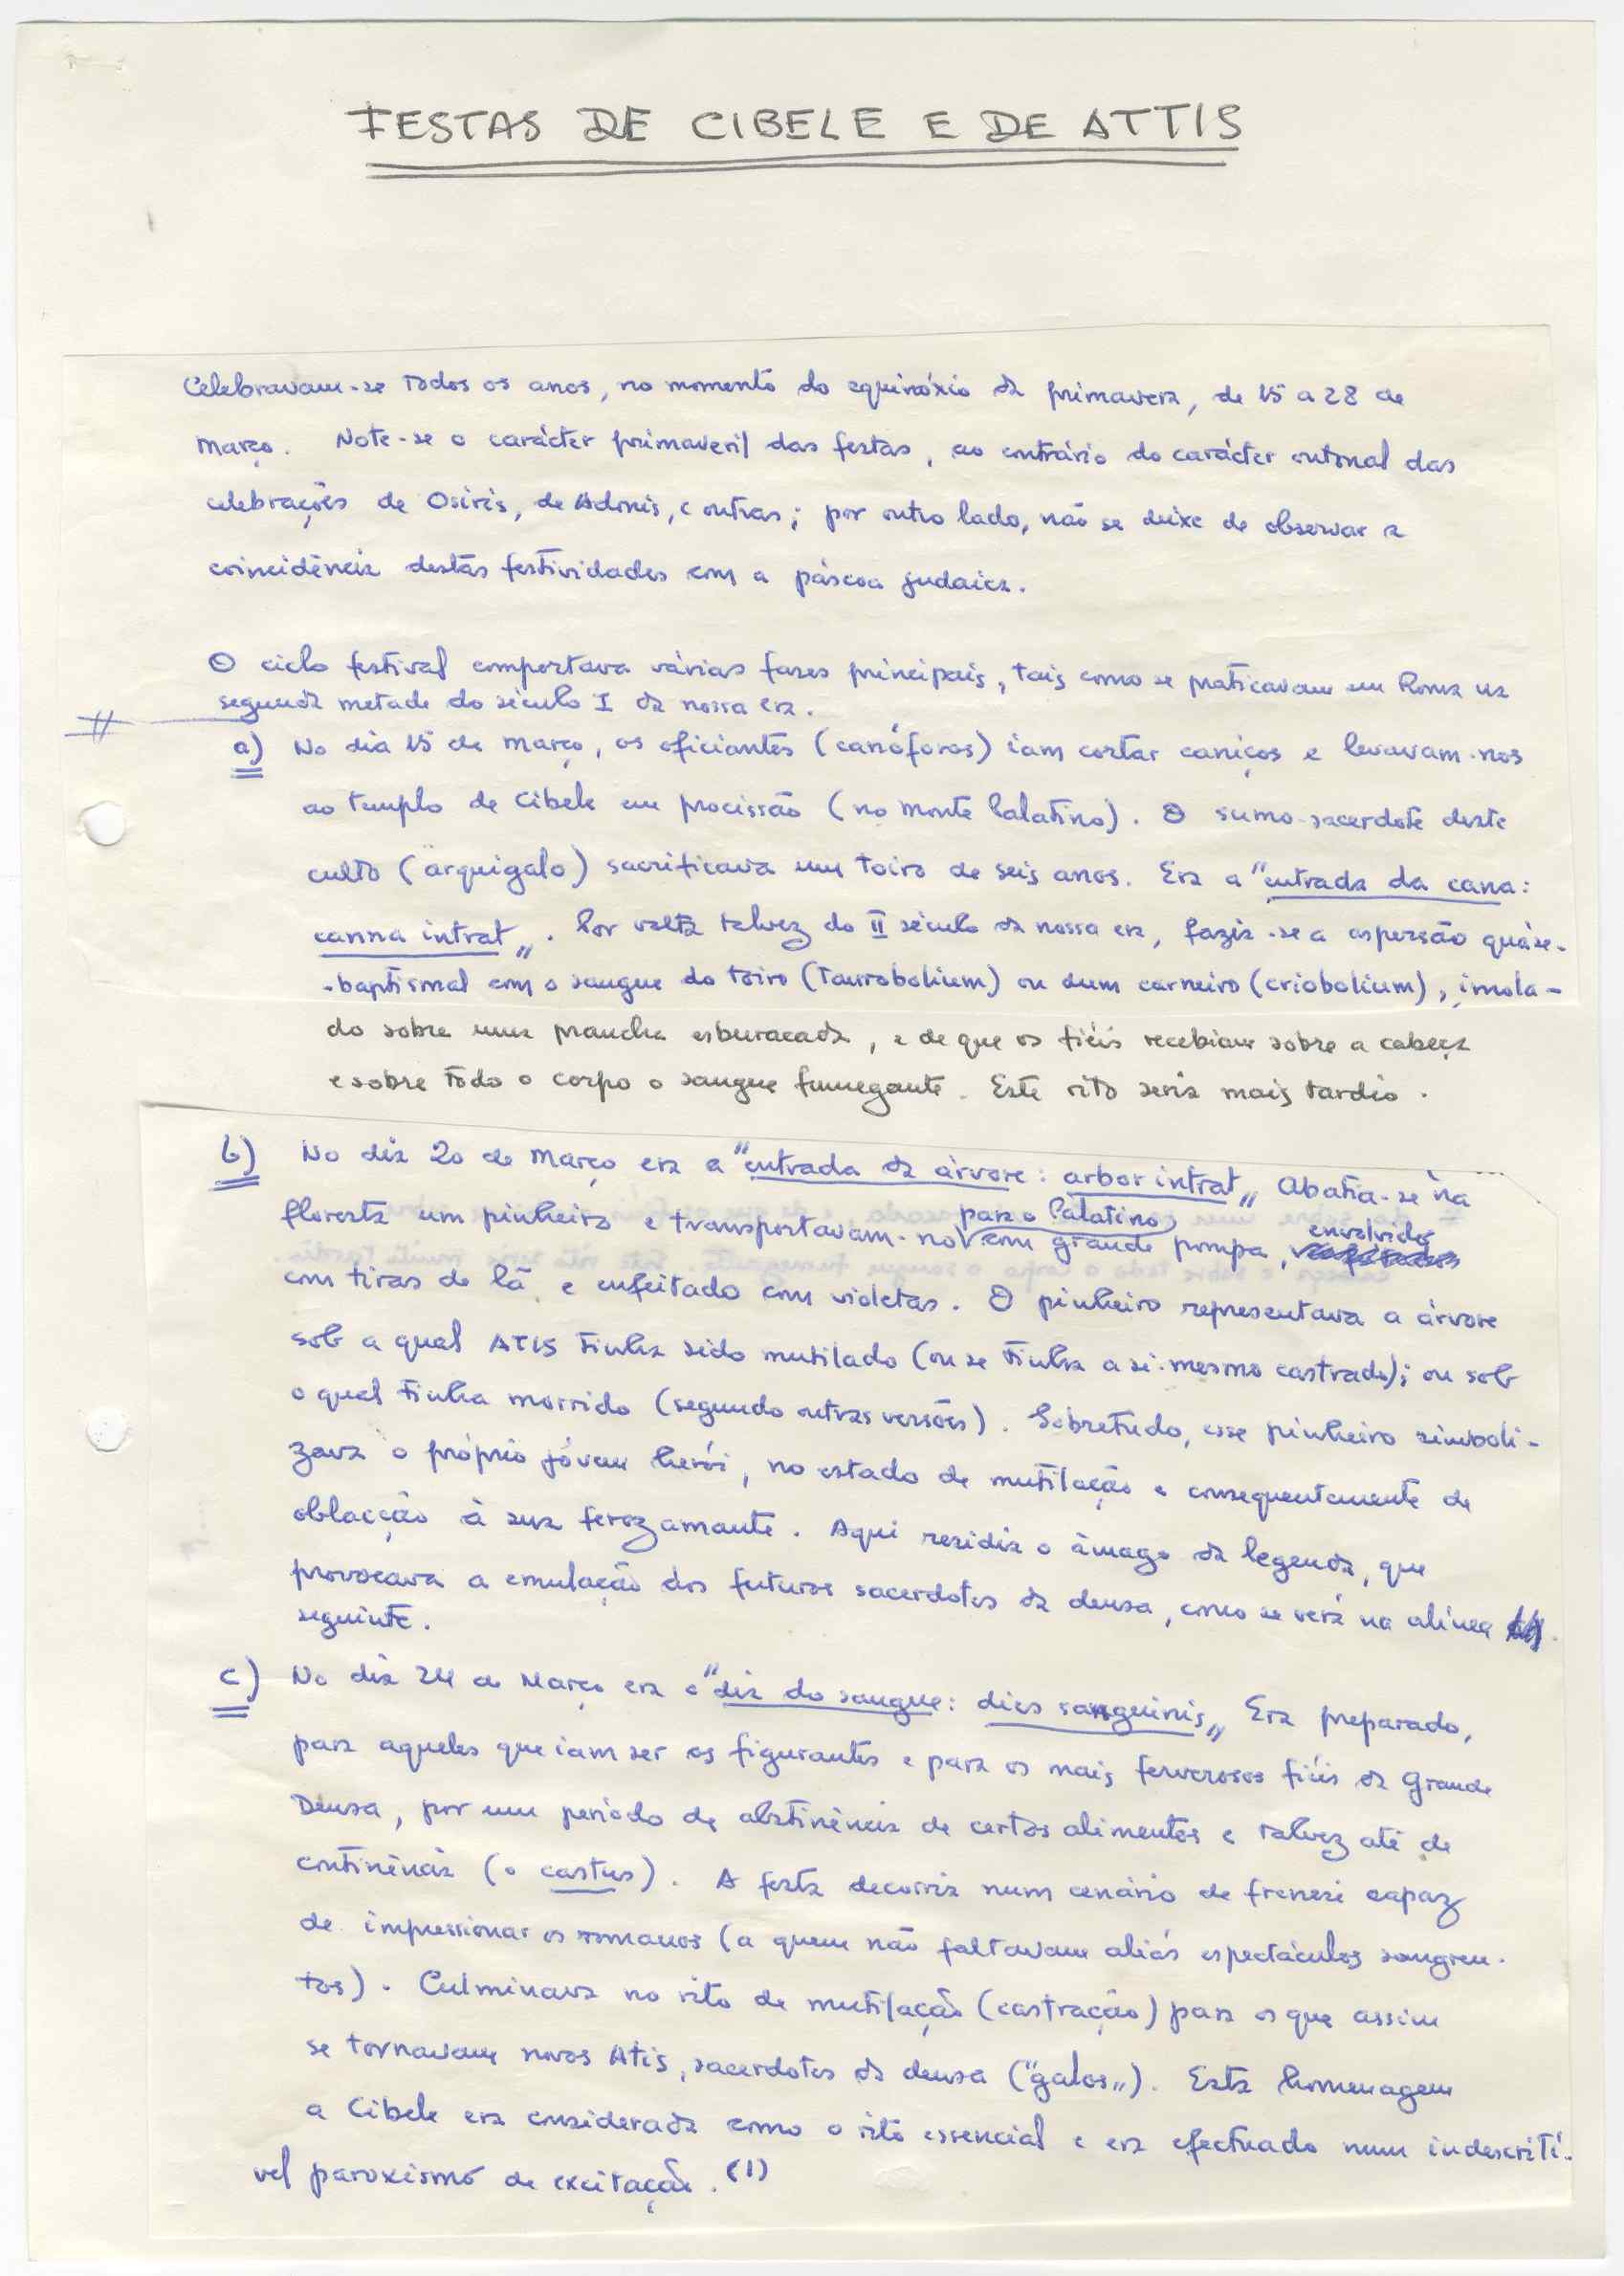 FESTAS DE CIBELE E DE ATTIS
Celebravam-se todos os anos, no momento do equinóxio da primavera, de 15 a 28 de
março. Note-se o carácter primaveril das festas, ao contrário do carácter outonal das
celebrações de Osiris, de Adonis, e outras; por outro lado, não se deixe de observar a
coincidência destas festividades com a páscoa judaica.
O ciclo festival comportava várias fases principais, tais como se praticavam em Roma na
segunda metade do século I da nossa era.
a) No dia 15 de março, os oficiantes (canóforos) iam cortar caniços e levavam-nos
ao templo de Cibele em procissão (no monte Palatino). O sumo-sacerdote deste
culto (arquigalo) sacrificava um toiro de seis anos. Era a "entrada da cana:
canna intrat„. Por volta talvez do II século da nossa era, fazia-se a aspersão quáse-
-baptismal com o sangue do toiro (taurobolium) ou dum carneiro (criobolium), imola-
do sobre uma prancha esburacada, e de que os fiéis recebiam sobre a cabeça
e sobre todo o corpo o sangue fumegante. Este rito seria mais tardio.
b) No dia 20 de março era a "entrada da árvore: arbor intrat„ Abatia-se na
floresta um pinheiro e transportavam-no para o Palatino com grande pompa, envolvido
com tiras de lã e enfeitado com violetas. O pinheiro representava a árvore
sob a qual ATIS tinha sido mutilado (ou se tinha a si-mesmo castrado); ou sob
o qual tinha morrido (segundo outras versões). Sobretudo, esse pinheiro simboli-
zava o próprio jóvem herói, no estado de mutilação e consequentemente de
oblacção à sua feroz amante. Aqui residia o âmago da legenda, que
provocava a emulação dos futuros sacerdotes da deusa, como se verá na alínea
seguinte.
c) No dia 24 de Março era o "dia do sangue: dies sanguinis„ Era preparado,
para aqueles que iam ser os figurantes e para os mais fervorosos fiéis da Grande
Deusa, por um período de abstinência de certos alimentos e talvez até de
continência (o castus). A festa decorria num cenário de frenesi capaz
de impressionar os romanos (a quem não faltavam aliás espectáculos sangren-
tos). Culminava no rito de mutilação (castração) para os que assim
se tornavam novos Atis, sacerdotes da deusa ("galos„). Esta homenagem
a Cibele era considerada como o rito essencial e era efectuado num indescrití-
vel paroxismo de excitação. (1)